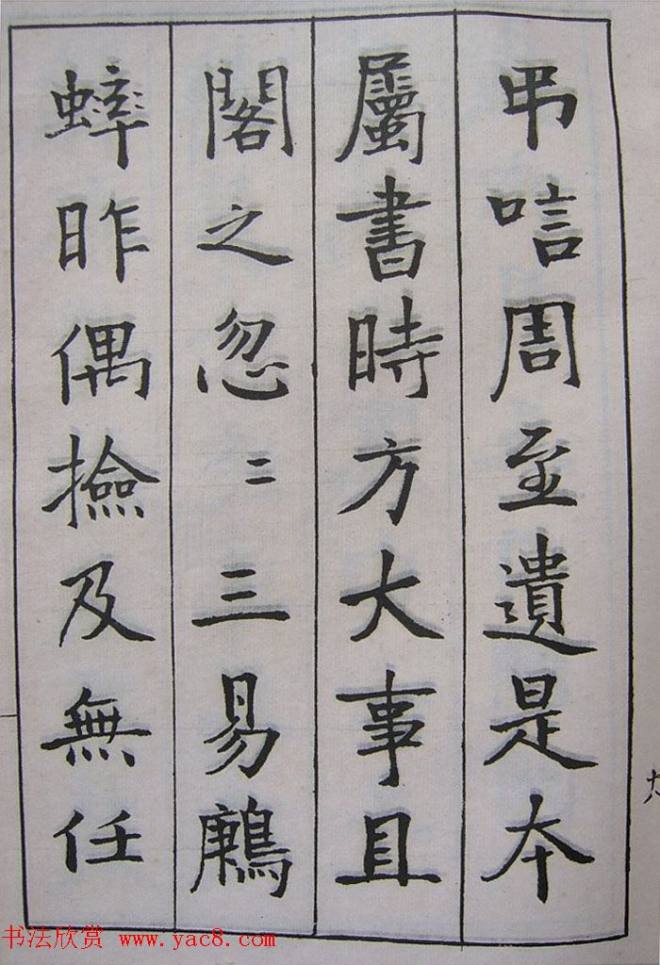 弔唁周至遺是本
屬書時方大事且
閣之忽〻三易鶊
蟀昨偶撿及無任
书法欣赏 www.yac8.com